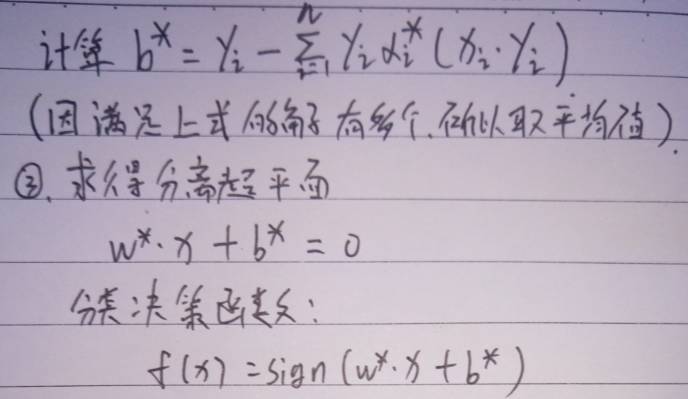 计算 b* = yᵢ - ∑ᵢ₌₁ᴺ yᵢ αᵢ* (xᵢ·yᵢ)
(因满足上式的解有多个,所以取平均值).
③. 求得分离超平面
w*·x + b* = 0
分类决策函数:
f(x) = sign (w*·x + b*)